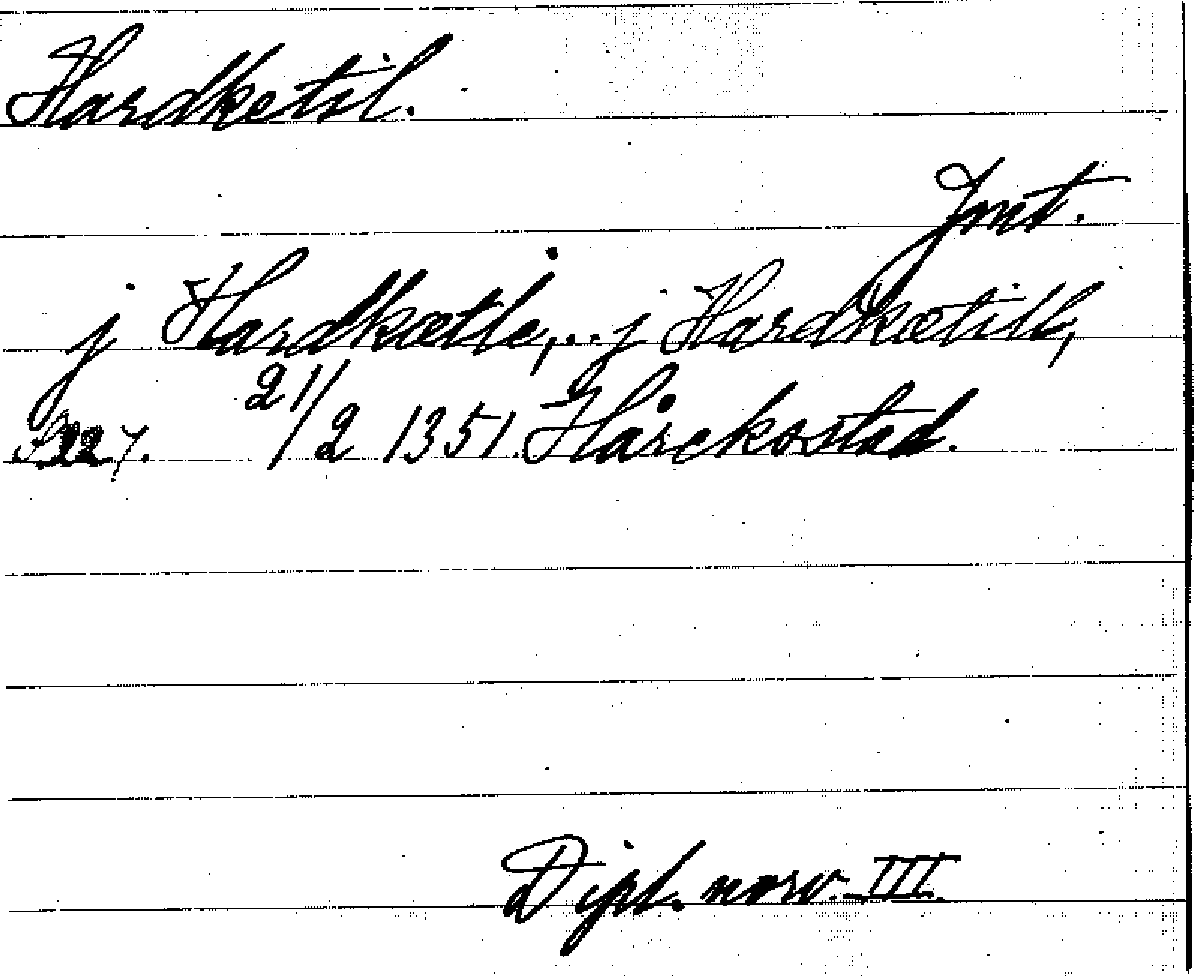 Hardketil.
Jmt.
j Hardkætle,... j Hardkætill,
S. 227. 21/2 1351. Hårckostad.
Dipl. norv. III.